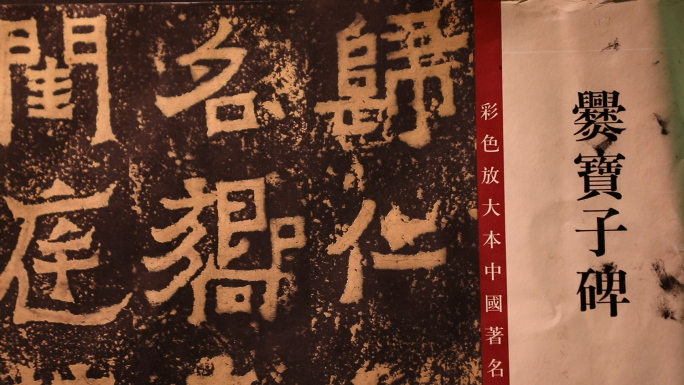 爨寶子碑
彩色放大本中國著名
歸仁
名嚮
閨庭